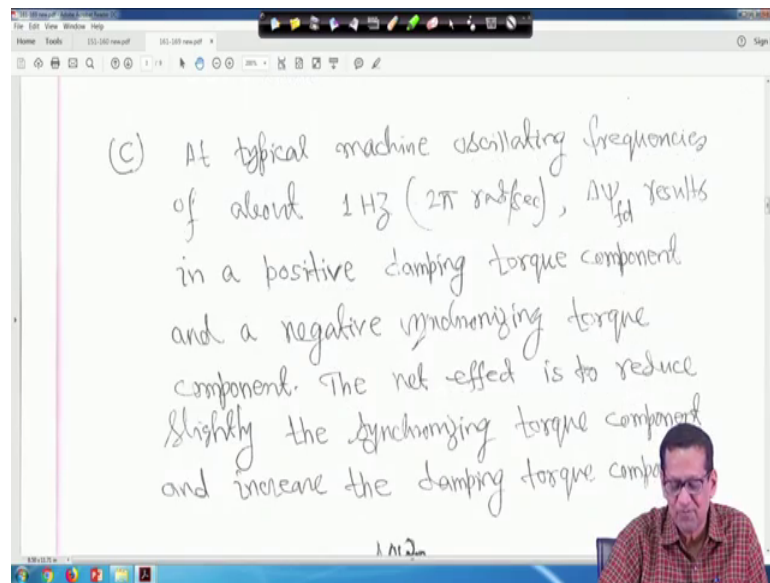 161-169 new.pdf - Adobe Acrobat Reader DC
File Edit View Window Help
Home Tools 151-160 new.pdf 161-169 new.pdf × Sign
(C) At typical machine oscillating frequencies
of about 1 Hz (2π rad/sec), Δψfd results
in a positive damping torque component
and a negative synchronizing torque
component. The net effect is to reduce
slightly the synchronizing torque component
and increase the damping torque compo